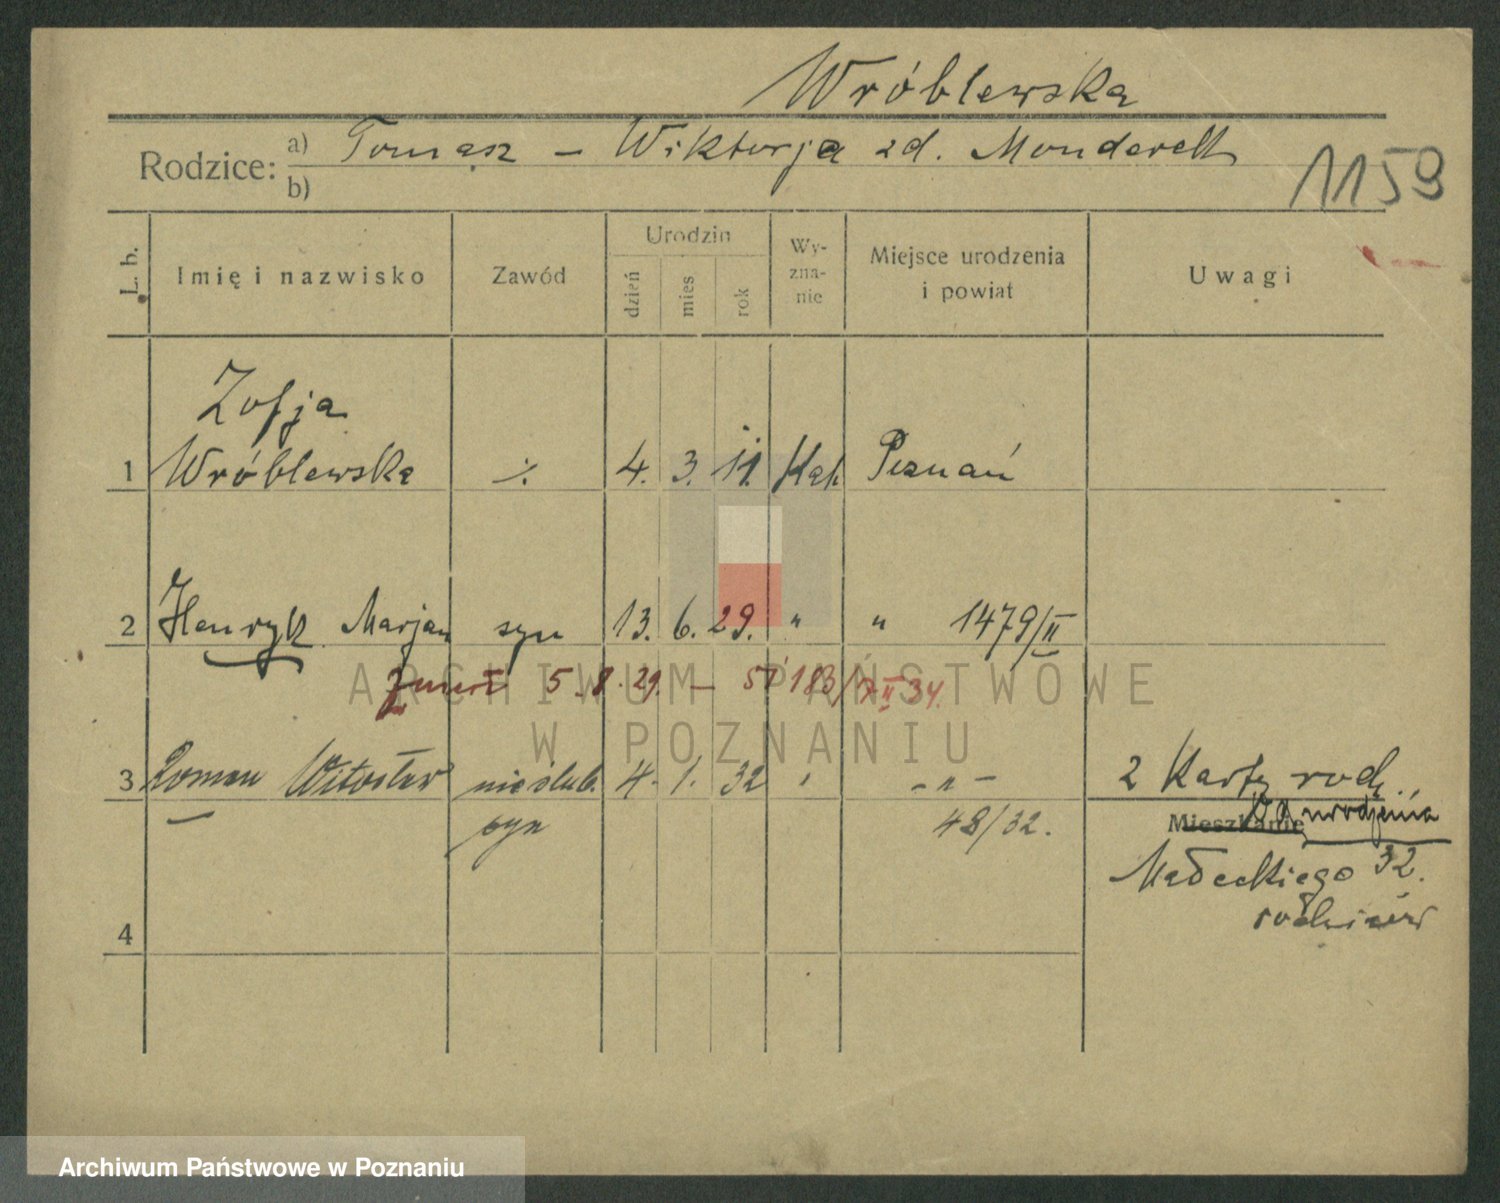 Wróblewska
Rodzice: a) Tomasz – Wiktorja zd. Monderelt
b)
1159
L. b.
Imię i nazwisko
Zawód
Urodzin
dzień
mies
rok
Wy-
zna-
nie
Miejsce urodzenia
i powiat
Uwagi
Zofja
1 Wróblewska ./. 4. 3. 11. Kat. Poznań
2 Henryk Marjan syn 13. 6. 29. " " 1479/II
zmarł 5.8.29. – 183/ II 34.
3 Roman Witosław nieślub. 4. 1. 32 " – " – 2 Karty rodz.
syn 48/32. Mieszkanie Od urodzenia
Małeckiego 32.
rodziców
4
ARCHIWUM PAŃSTWOWE
W POZNANIU
Archiwum Państwowe w Poznaniu